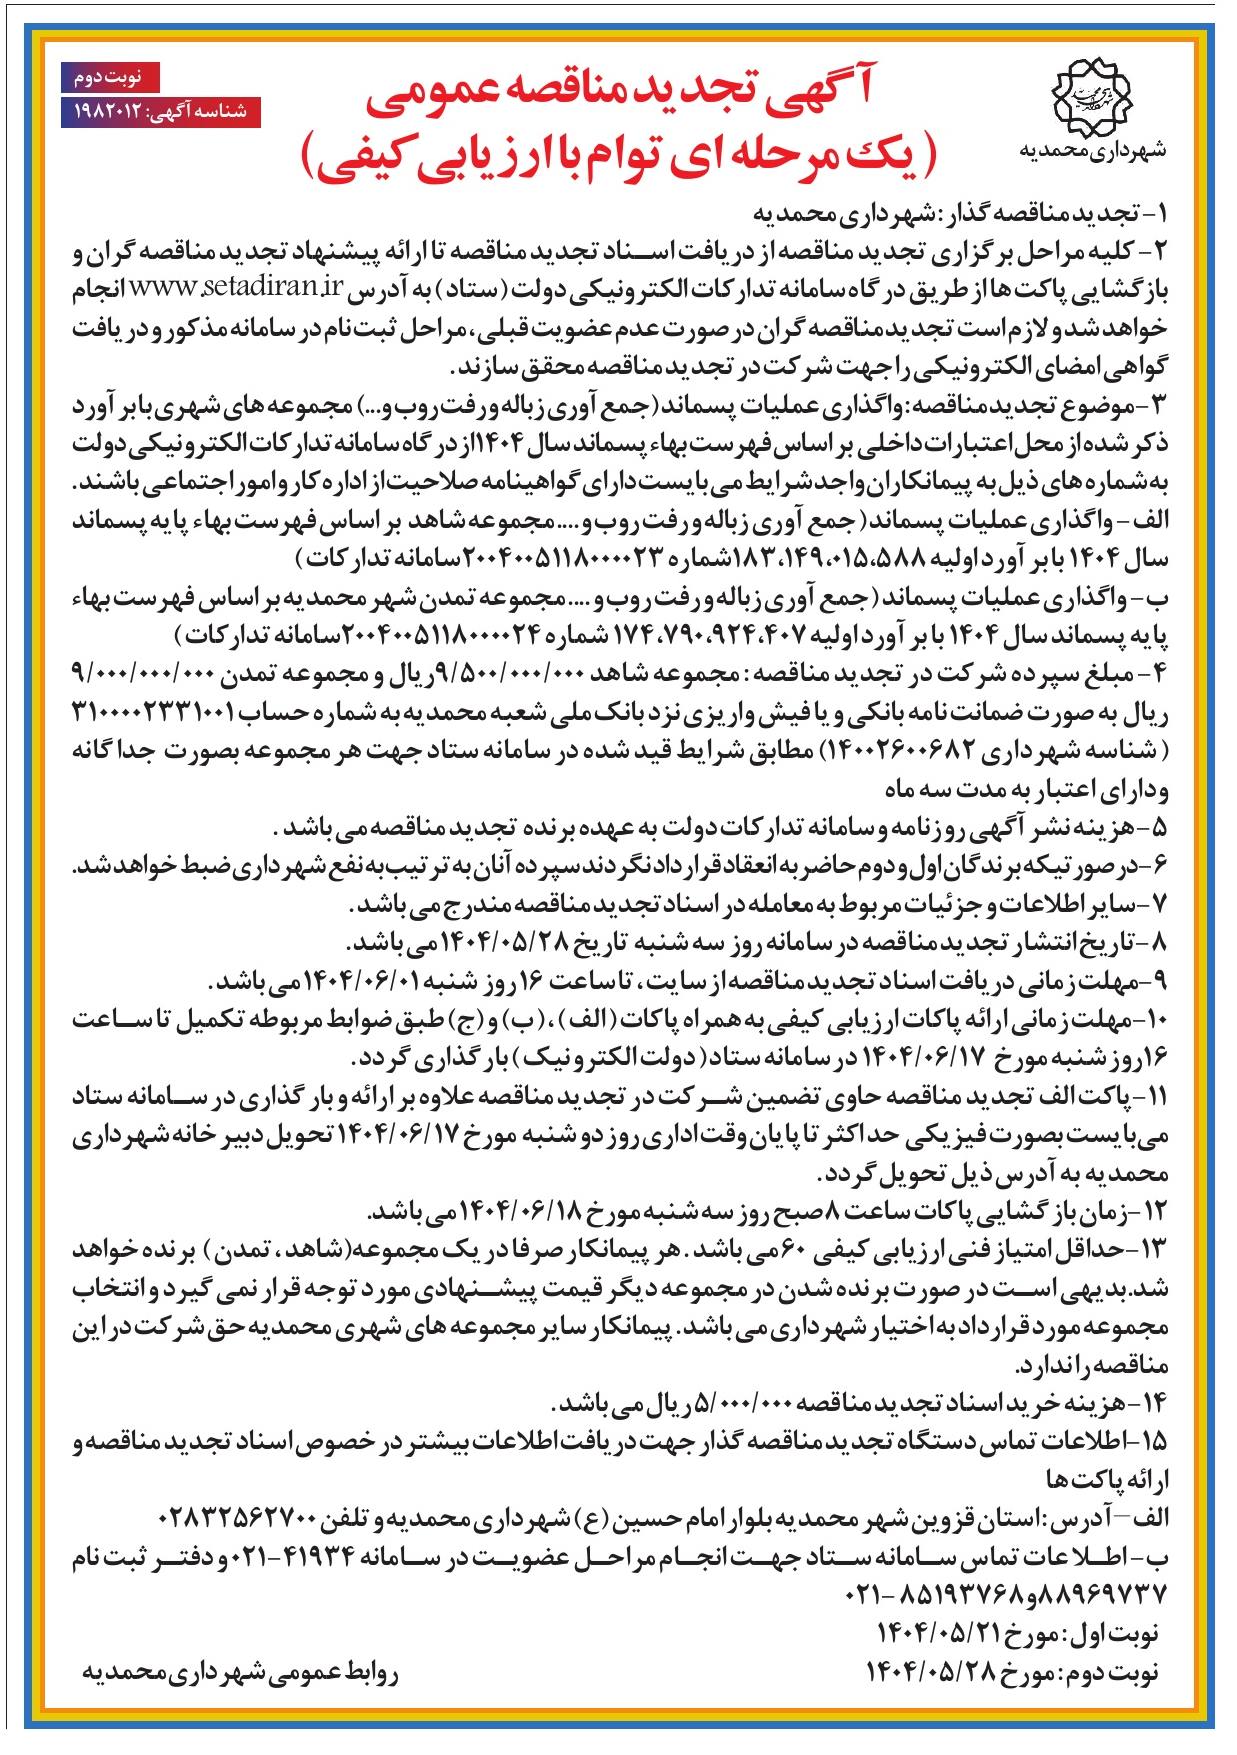 نوبت دوم
شناسه آگهی: ۱۹۸۲۰۱۲
آگهی تجدید مناقصه عمومی
(یک مرحله ای توام با ارزیابی کیفی)
شهرداری محمدیه
۱- تجدید مناقصه گذار: شهرداری محمدیه
۲- کلیه مراحل برگزاری تجدید مناقصه از دریافت اسناد تجدید مناقصه تا ارائه پیشنهاد تجدید مناقصه گران و
بازگشایی پاکت ها از طریق درگاه سامانه تدارکات الکترونیکی دولت (ستاد) به آدرس www.setadiran.ir انجام
خواهد شد و لازم است تجدید مناقصه گران در صورت عدم عضویت قبلی، مراحل ثبت نام در سامانه مذکور و دریافت
گواهی امضای الکترونیکی را جهت شرکت در تجدید مناقصه محقق سازند.
۳-موضوع تجدید مناقصه: واگذاری عملیات پسماند (جمع آوری زباله و رفت روب و...) مجموعه های شهری با برآورد
ذکر شده از محل اعتبارات داخلی بر اساس فهرست بهاء پسماند سال ۱۴۰۴ از درگاه سامانه تدارکات الکترونیکی دولت
به شماره های ذیل به پیمانکاران واجد شرایط می بایست دارای گواهینامه صلاحیت از اداره کار و امور اجتماعی باشند.
الف - واگذاری عملیات پسماند (جمع آوری زباله و رفت روب و.... مجموعه شاهد بر اساس فهرست بهاء پایه پسماند
سال ۱۴۰۴ با برآورد اولیه ۱۸۳،۱۴۹،۰۱۵،۵۸۸ شماره ۲۰۰۴۰۰۵۱۱۸۰۰۰۰۲۳ سامانه تدارکات)
ب- واگذاری عملیات پسماند (جمع آوری زباله و رفت روب و.... مجموعه تمدن شهر محمدیه بر اساس فهرست بهاء
پایه پسماند سال ۱۴۰۴ با برآورد اولیه ۱۷۴،۷۹۰،۹۲۴،۴۰۷ شماره ۲۰۰۴۰۰۵۱۱۸۰۰۰۰۲۴ سامانه تدارکات)
۴- مبلغ سپرده شرکت در تجدید مناقصه: مجموعه شاهد ۹/۵۰۰/۰۰۰/۰۰۰ ریال و مجموعه تمدن ۹/۰۰۰/۰۰۰/۰۰۰
ریال به صورت ضمانت نامه بانکی و یا فیش واریزی نزد بانک ملی شعبه محمدیه به شماره حساب ۳۱۰۰۰۰۲۳۳۱۰۰۱
(شناسه شهرداری ۱۴۰۰۲۶۰۰۶۸۲) مطابق شرایط قید شده در سامانه ستاد جهت هر مجموعه بصورت جداگانه
و دارای اعتبار به مدت سه ماه
۵-هزینه نشر آگهی روزنامه و سامانه تدارکات دولت به عهده برنده تجدید مناقصه می باشد.
۶-در صورتیکه برندگان اول و دوم حاضر به انعقاد قرارداد نگردند سپرده آنان به ترتیب به نفع شهرداری ضبط خواهد شد.
۷-سایر اطلاعات و جزئیات مربوط به معامله در اسناد تجدید مناقصه مندرج می باشد.
۸-تاریخ انتشار تجدید مناقصه در سامانه روز سه شنبه تاریخ ۱۴۰۴/۰۵/۲۸ می باشد.
۹-مهلت زمانی دریافت اسناد تجدید مناقصه از سایت، تا ساعت ۱۶ روز شنبه ۱۴۰۴/۰۶/۰۱ می باشد.
۱۰-مهلت زمانی ارائه پاکات ارزیابی کیفی به همراه پاکات (الف)، (ب) و (ج) طبق ضوابط مربوطه تکمیل تا ساعت
۱۶ روز شنبه مورخ ۱۴۰۴/۰۶/۱۷ در سامانه ستاد (دولت الکترونیک) بارگذاری گردد.
۱۱-پاکت الف تجدید مناقصه حاوی تضمین شرکت در تجدید مناقصه علاوه بر ارائه و بارگذاری در سامانه ستاد
می بایست بصورت فیزیکی حداکثر تا پایان وقت اداری روز دوشنبه مورخ ۱۴۰۴/۰۶/۱۷ تحویل دبیرخانه شهرداری
محمدیه به آدرس ذیل تحویل گردد.
۱۲-زمان بازگشایی پاکات ساعت ۸ صبح روز سه شنبه مورخ ۱۴۰۴/۰۶/۱۸ می باشد.
۱۳-حداقل امتیاز فنی ارزیابی کیفی ۶۰ می باشد. هر پیمانکار صرفا در یک مجموعه (شاهد، تمدن) برنده خواهد
شد. بدیهی است در صورت برنده شدن در مجموعه دیگر قیمت پیشنهادی مورد توجه قرار نمی گیرد و انتخاب
مجموعه مورد قرارداد به اختیار شهرداری می باشد. پیمانکار سایر مجموعه های شهری محمدیه حق شرکت در این
مناقصه را ندارد.
۱۴-هزینه خرید اسناد تجدید مناقصه ۵/۰۰۰/۰۰۰ ریال می باشد.
۱۵-اطلاعات تماس دستگاه تجدید مناقصه گذار جهت دریافت اطلاعات بیشتر در خصوص اسناد تجدید مناقصه و
ارائه پاکت ها
الف-آدرس: استان قزوین شهر محمدیه بلوار امام حسین (ع) شهرداری محمدیه و تلفن ۰۲۸۳۲۵۶۲۷۰۰
ب- اطلاعات تماس سامانه ستاد جهت انجام مراحل عضویت در سامانه ۴۱۹۳۴-۰۲۱ و دفتر ثبت نام
۸۸۹۶۹۷۳۷ و ۸۵۱۹۳۷۶۸-۰۲۱
نوبت اول: مورخ ۱۴۰۴/۰۵/۲۱
نوبت دوم: مورخ ۱۴۰۴/۰۵/۲۸
روابط عمومی شهرداری محمدیه